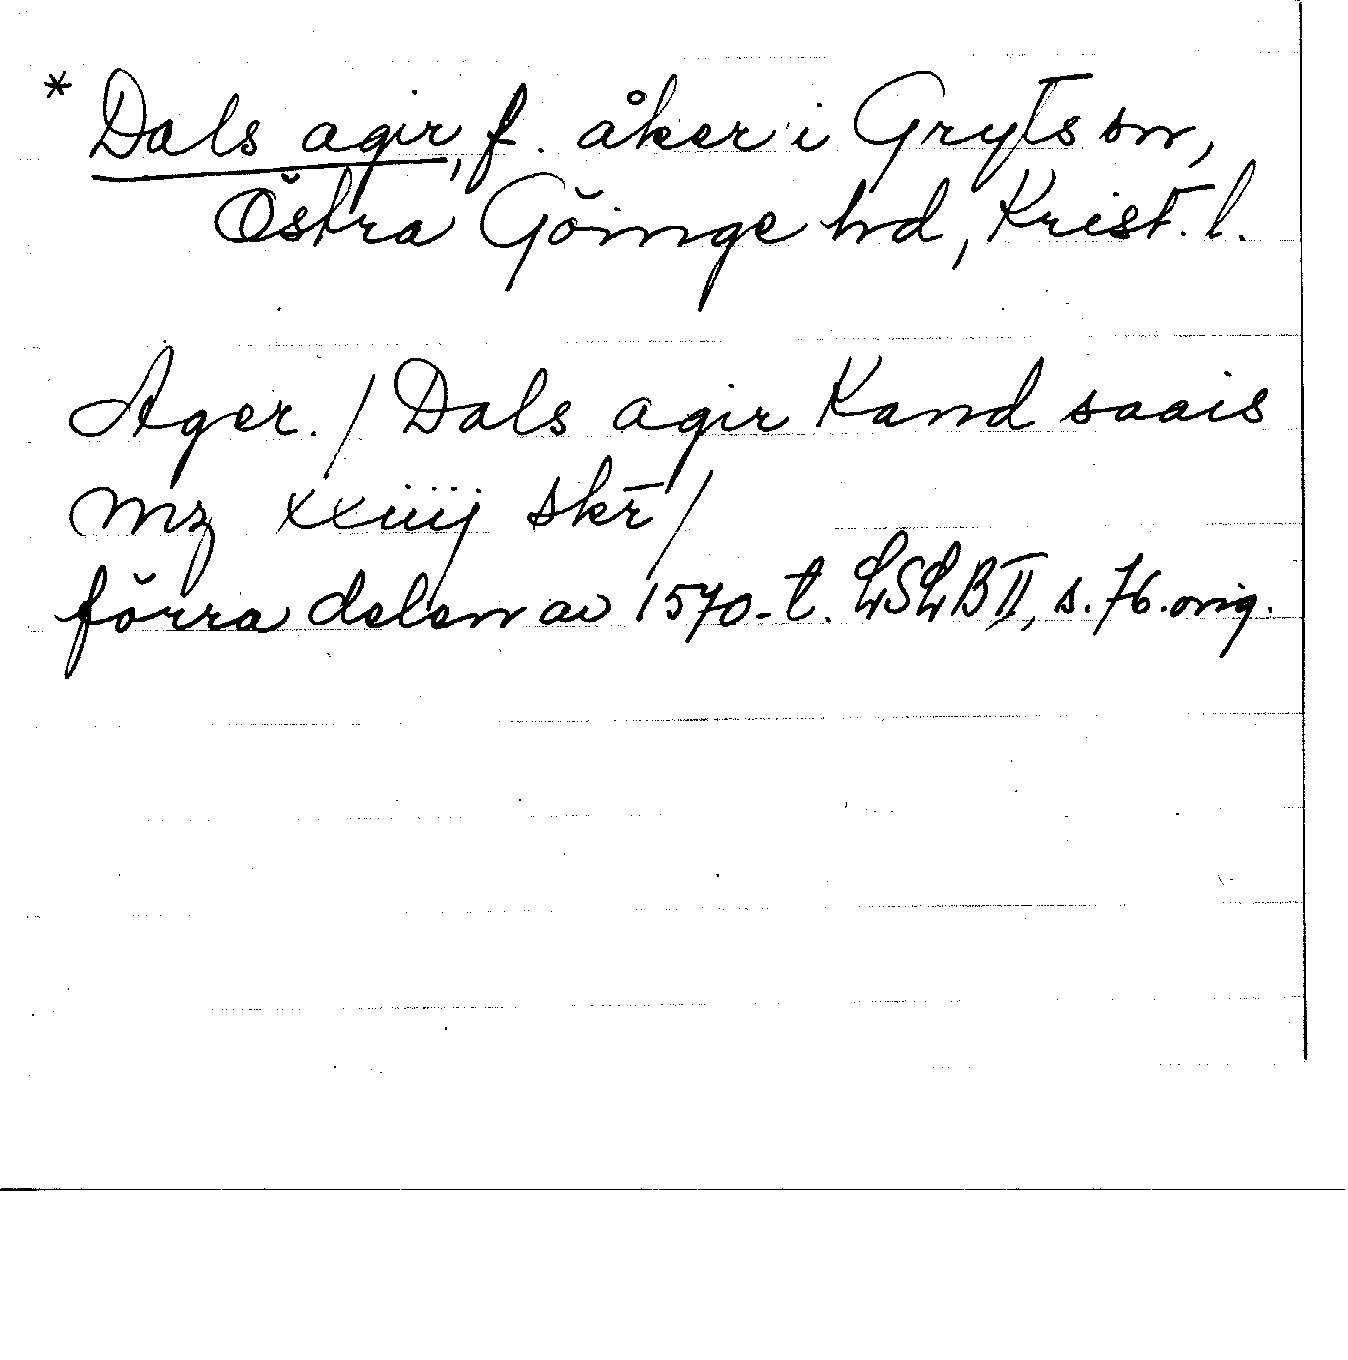 * Dals agir, f. åker i Gryts sn,
Östra Göinge hd, Krist. l.
Ager. / Dals agir Kand saais
mz xxiiij skr̄ /
förra delen av 1570-t. LSLB II, s. 76. orig.